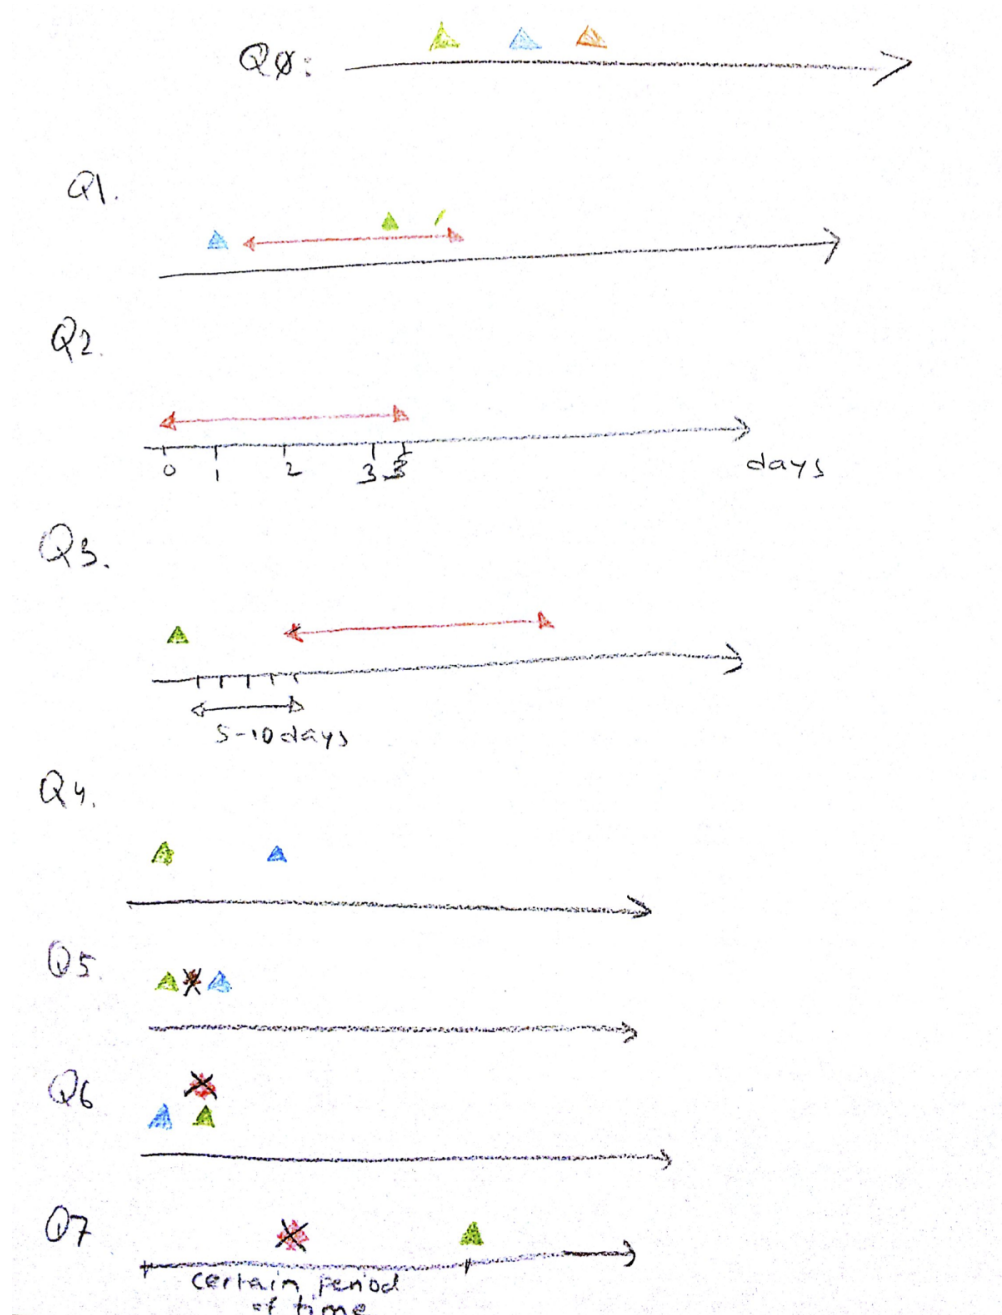 QØ:
Q1.
Q2.
0 1 2 3 3.5
days
Q3.
5-10 days
Q4.
Q5.
Q6
Q7
certain period
of time